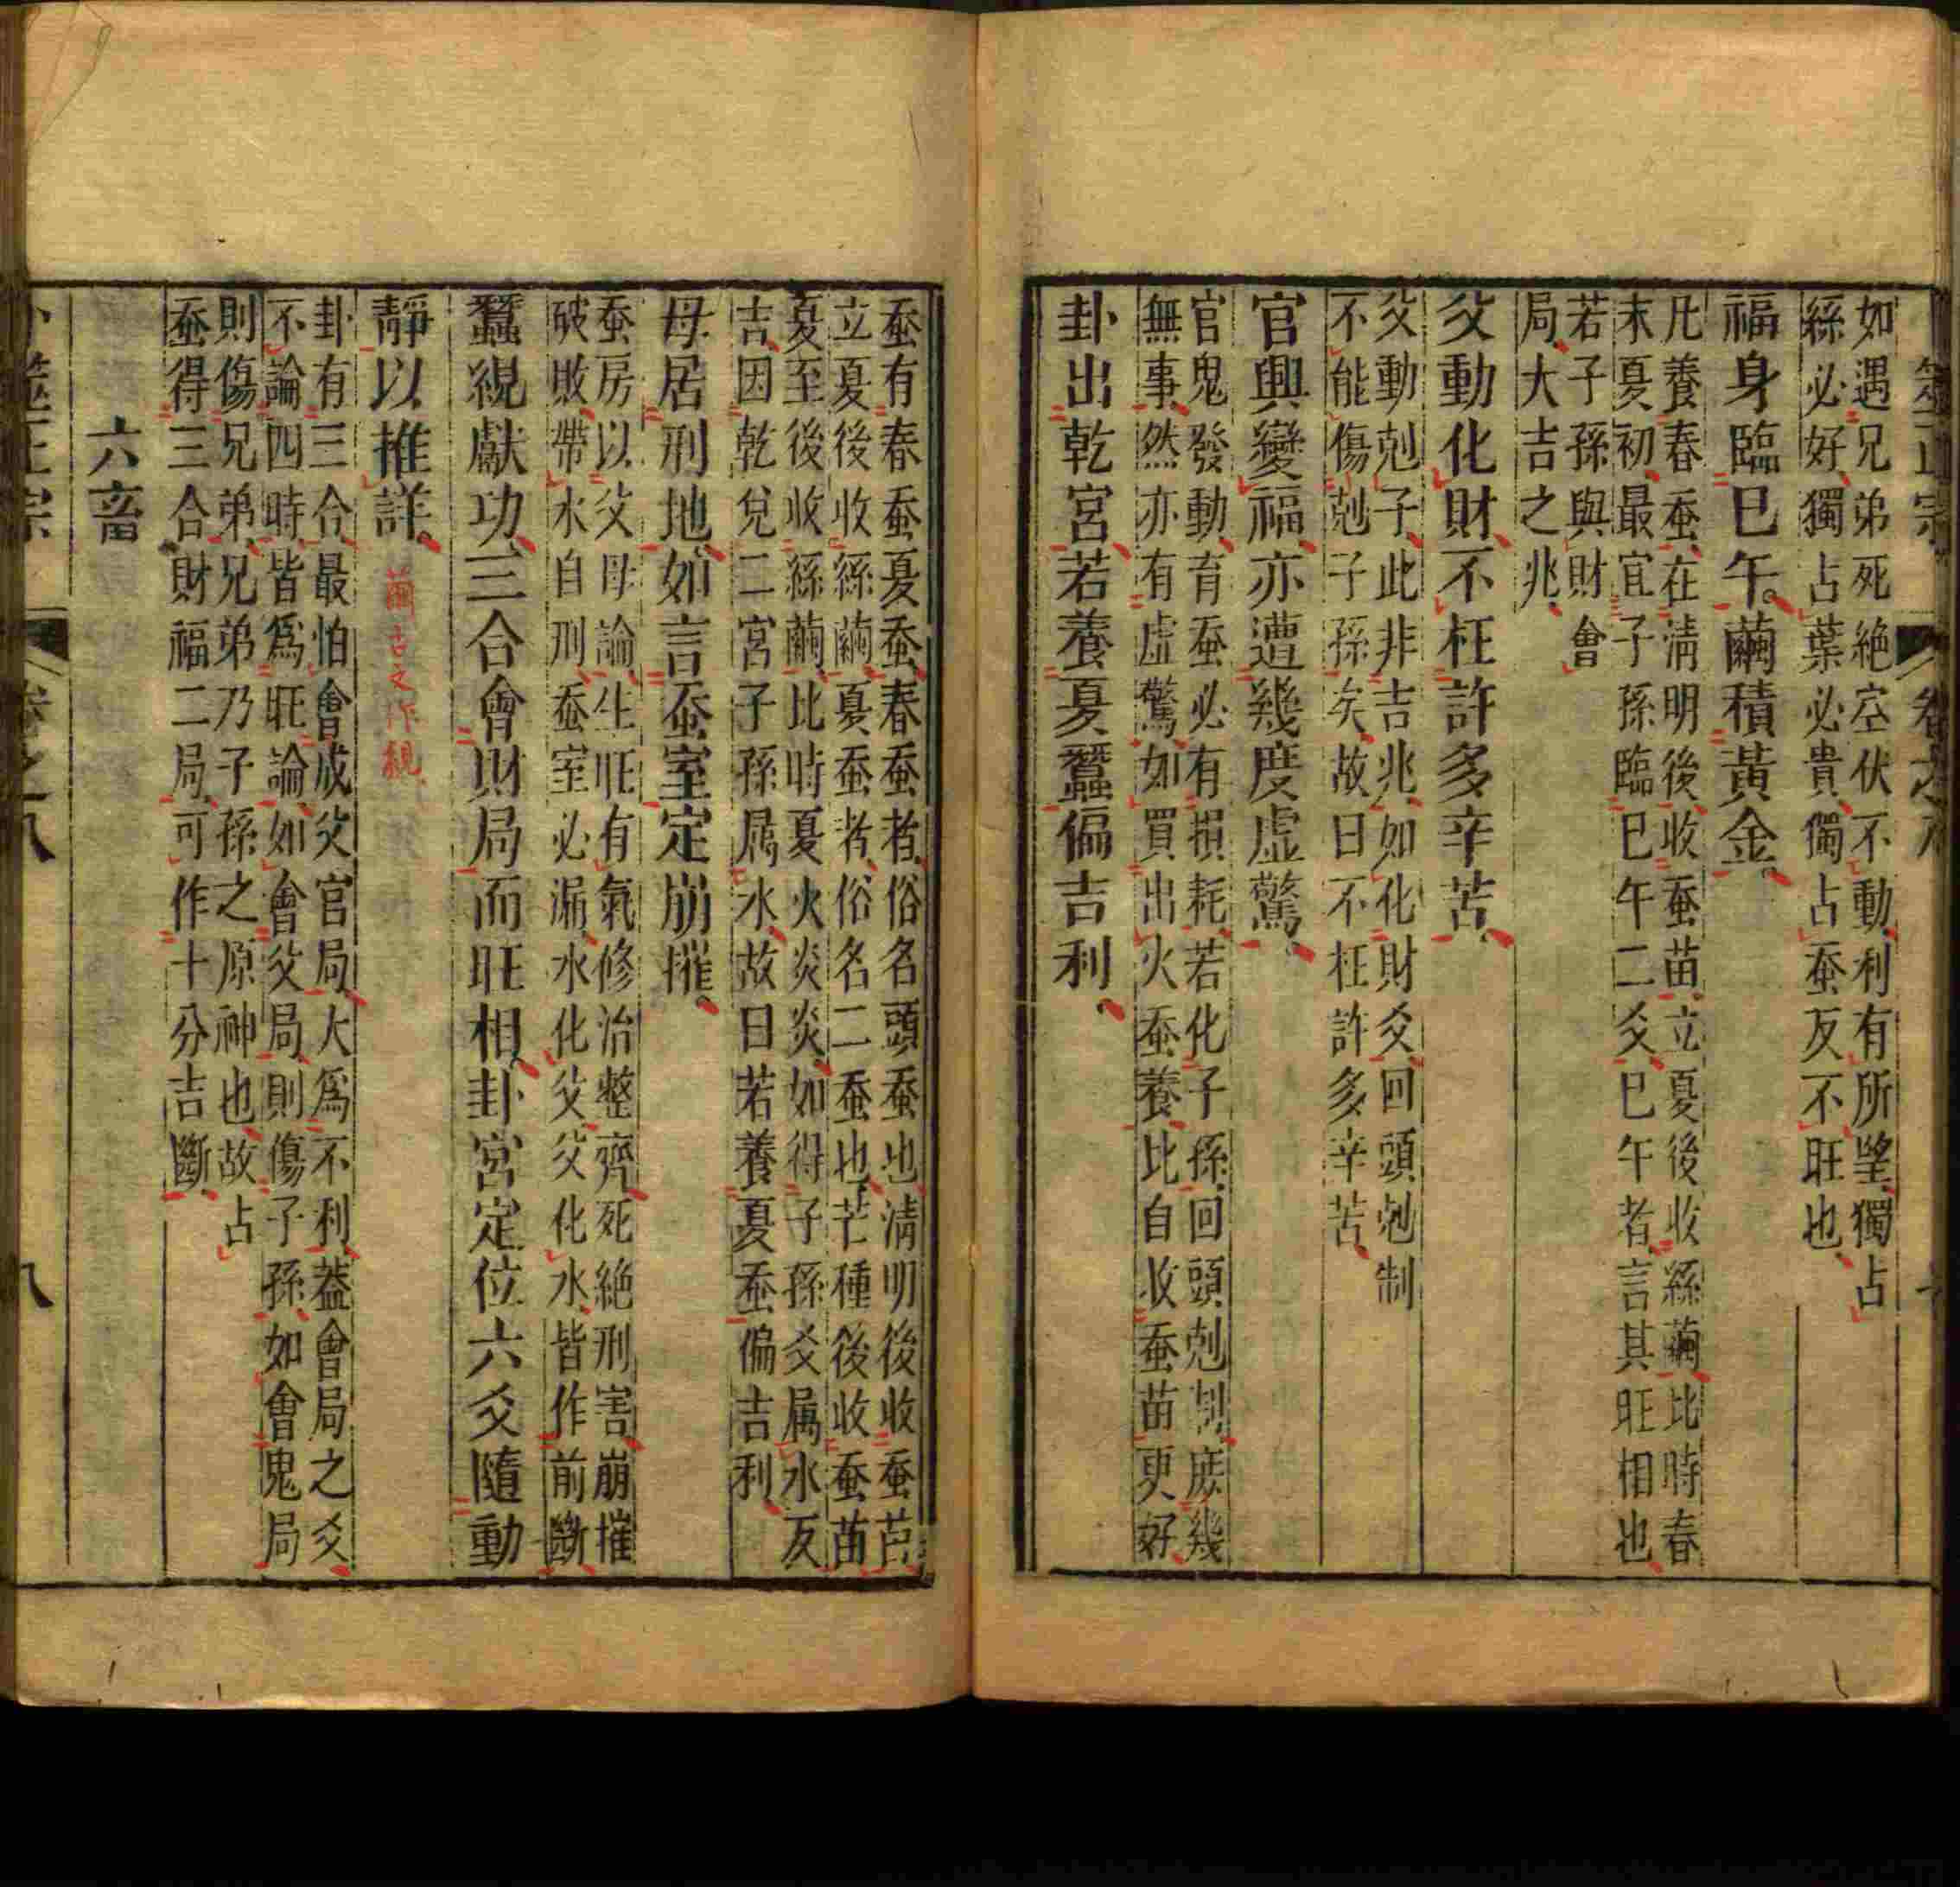 如遇兄弟死絕空伏不動利有所望獨占
絲必好獨占葉必貴獨占蚕反不旺也
福身臨巳午繭積黃金
凡養春蚕在清明後收蚕苗立夏後收絲繭比時春
末夏初最宜子孫臨巳午二爻巳午者言其旺相也
若子孫與財會
局大吉之兆
父動化財不枉許多辛苦
父動剋子此非吉兆如化財爻回頭剋制
不能傷剋子孫矣故曰不枉許多辛苦
官興變福亦遭幾度虛驚
官鬼發動育蚕必有損耗若化子孫回頭剋制庻幾
無事然亦有虛驚如買出火蚕養比自收蚕苗更好
卦出乾宮若養夏蠶偏吉利
蚕有春蚕夏蚕春蚕者俗名頭蚕也清明後收蚕苗
立夏後收絲繭夏蚕者俗名二蚕也芒種後收蚕苗
夏至後收絲繭比時夏火炎炎如得子孫爻属水反
吉因乾兌二宮子孫属水故曰若養夏蚕偏吉利
母居刑地如言蚕室定崩摧
蚕房以父母論生旺有氣修治整齊死絕刑害崩摧
破敗帶水自刑蚕室必漏水化父父化水皆作前斷
蠶絸獻功三合會財局而旺相卦宮定位六爻隨動
靜以推詳
繭古文作絸
卦有三合最怕會成父官局大為不利葢會局之爻
不論四時皆為旺論如會父局則傷子孫如會鬼局
則傷兄弟兄弟乃子孫之原神也故占
蚕得三合財福二局可作十分吉斷
六畜
卜筮正宗
卷之八
八